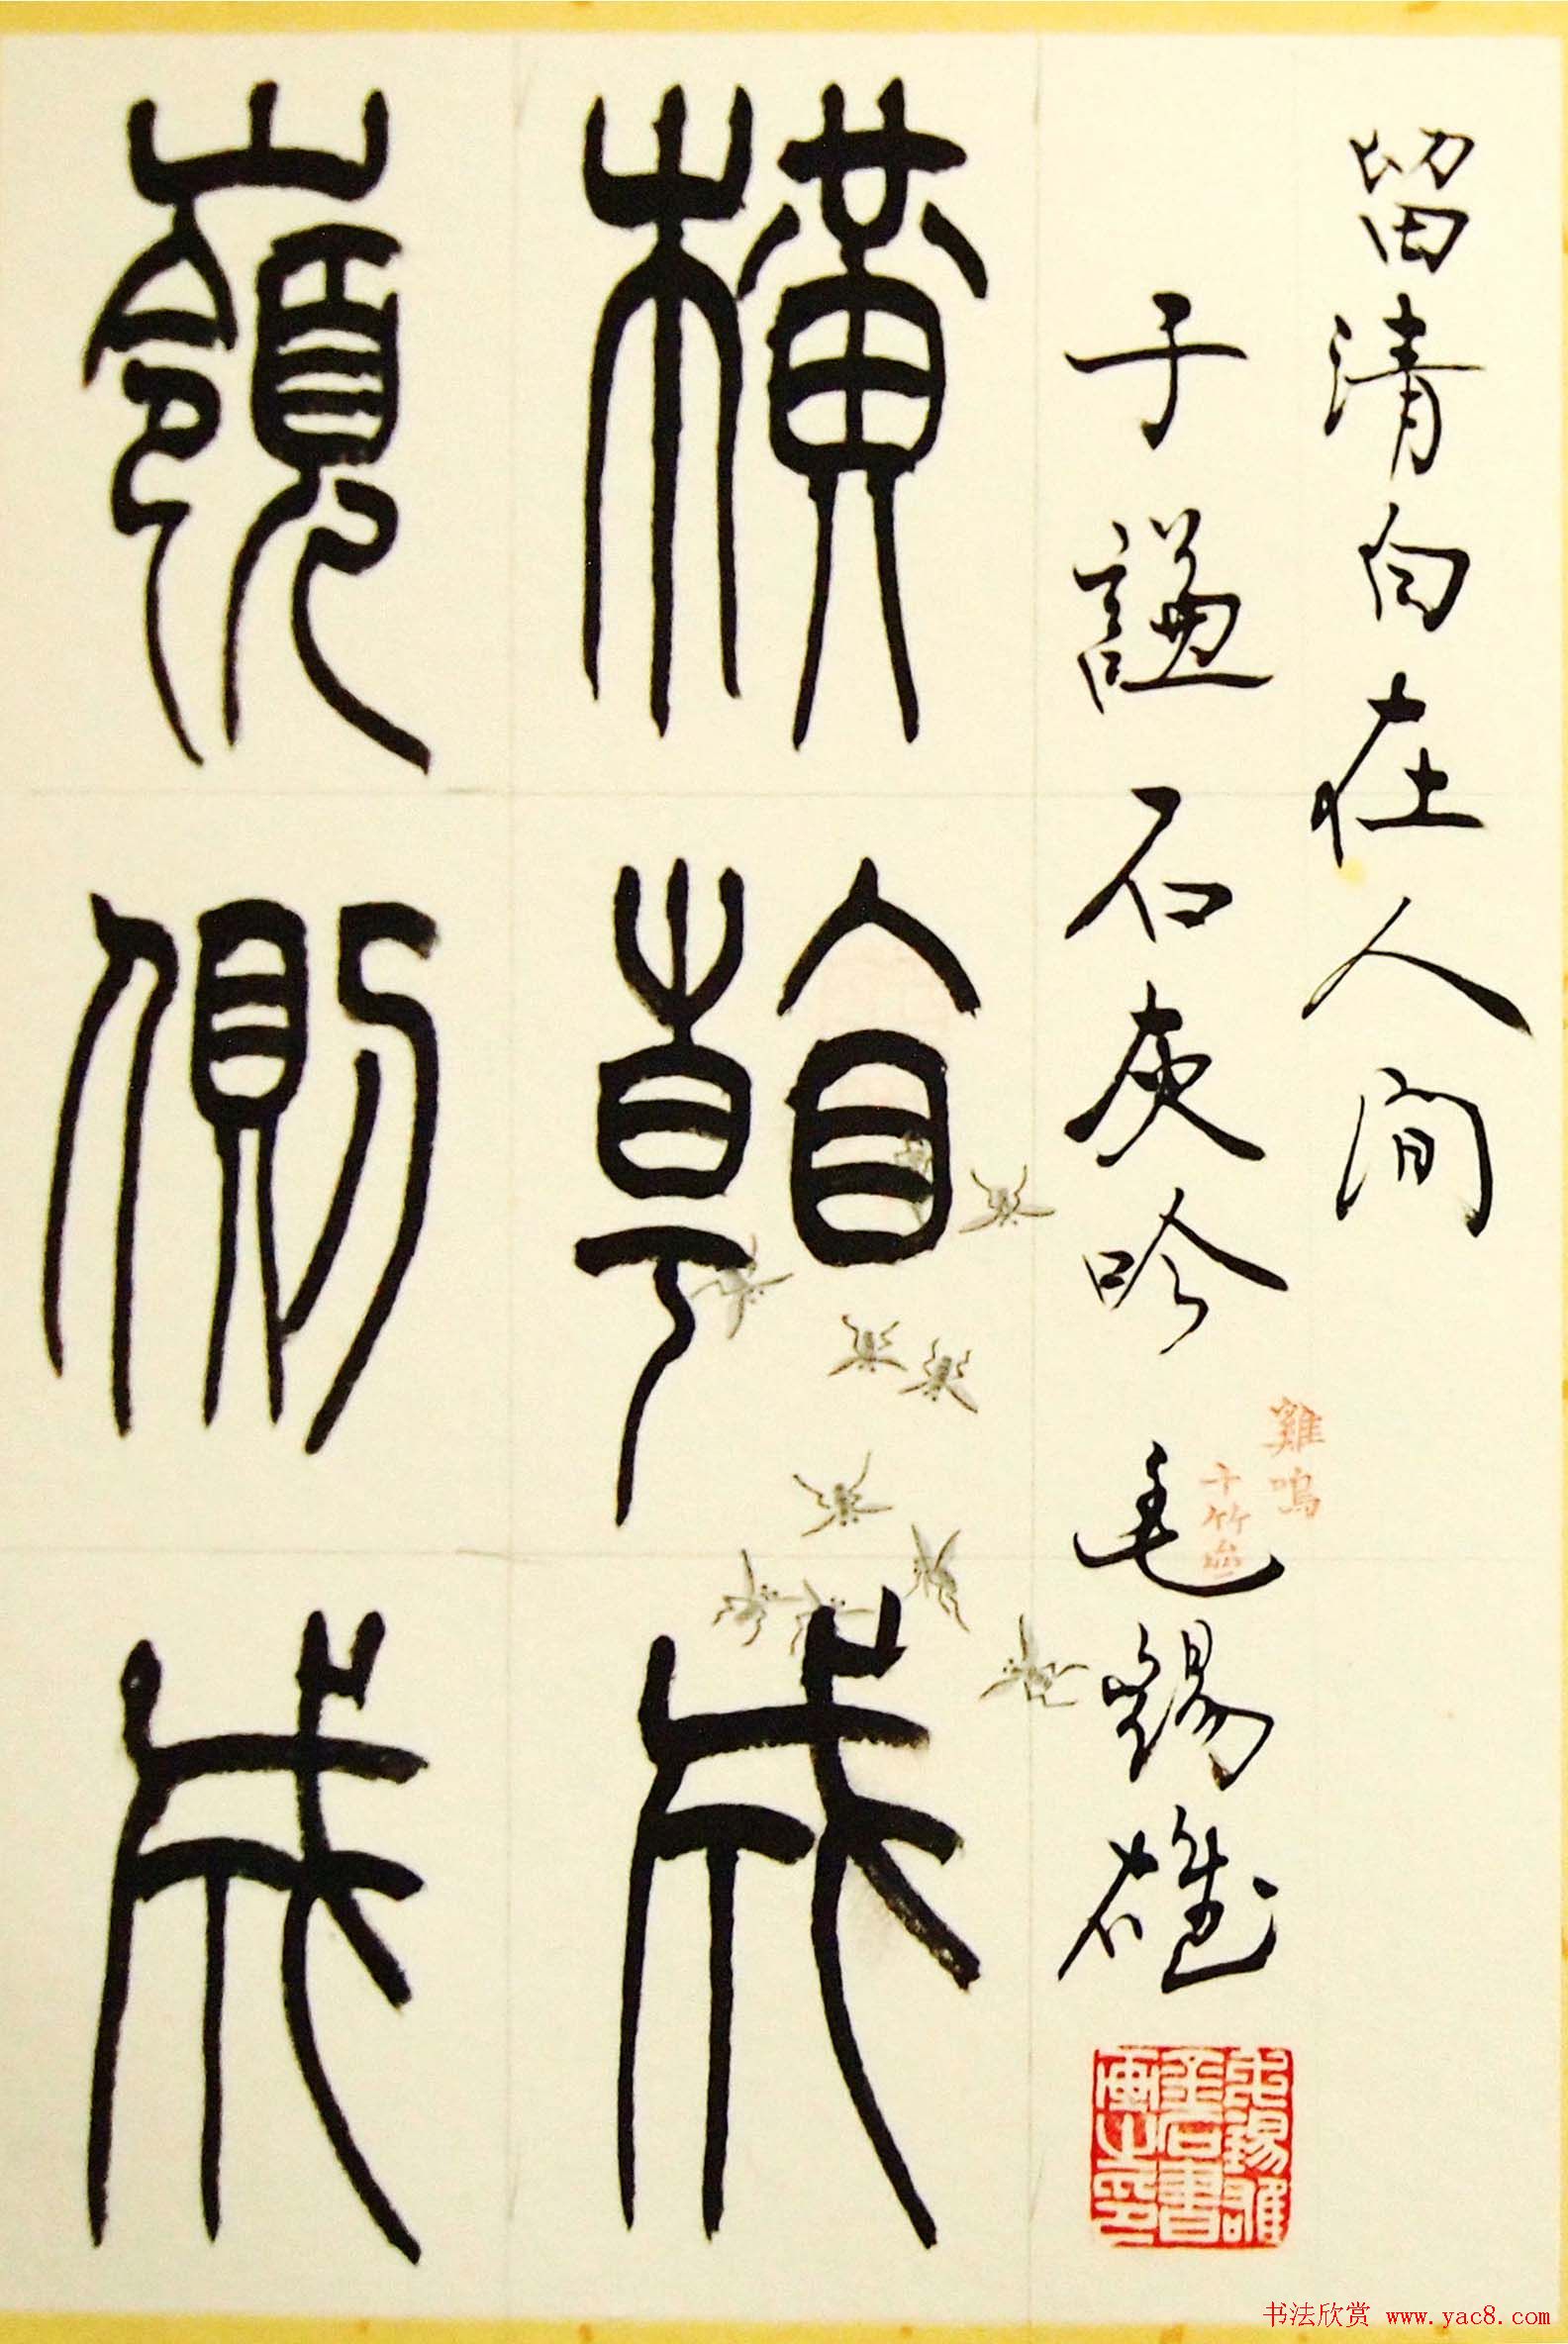 留清白在人間
于謙石灰吟 毛錫雄
雞鳴
十竹齋
橫看成
嶺側成
书法欣赏 www.yac8.com